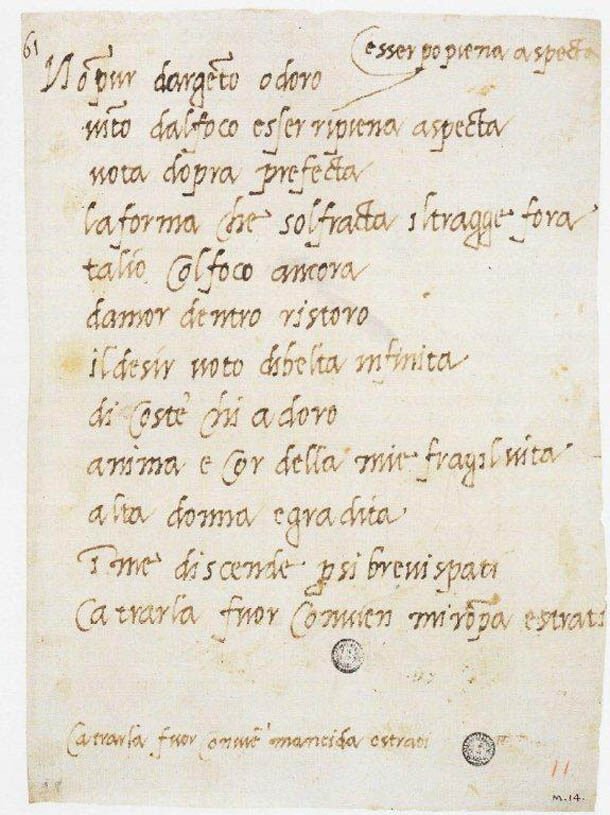 61
esser po piena aspecta
Nō pur dargēto o doro
uīto dal foco esser ripiena aspecta
uota dopra prefecta
la forma che sol fracta il tragge fora
tal io col foco ancora
damor dentro ristoro
il desir uoto di belta infinita
di coste chi adoro
anima e cor della mie fragil uita
alta donna e gradita
ī me discende ꝑ si breui spati
ca trarla fuor conuien mi rōpa e strati
ca trarla fuor conuiē mancida e strati
11
M.14.